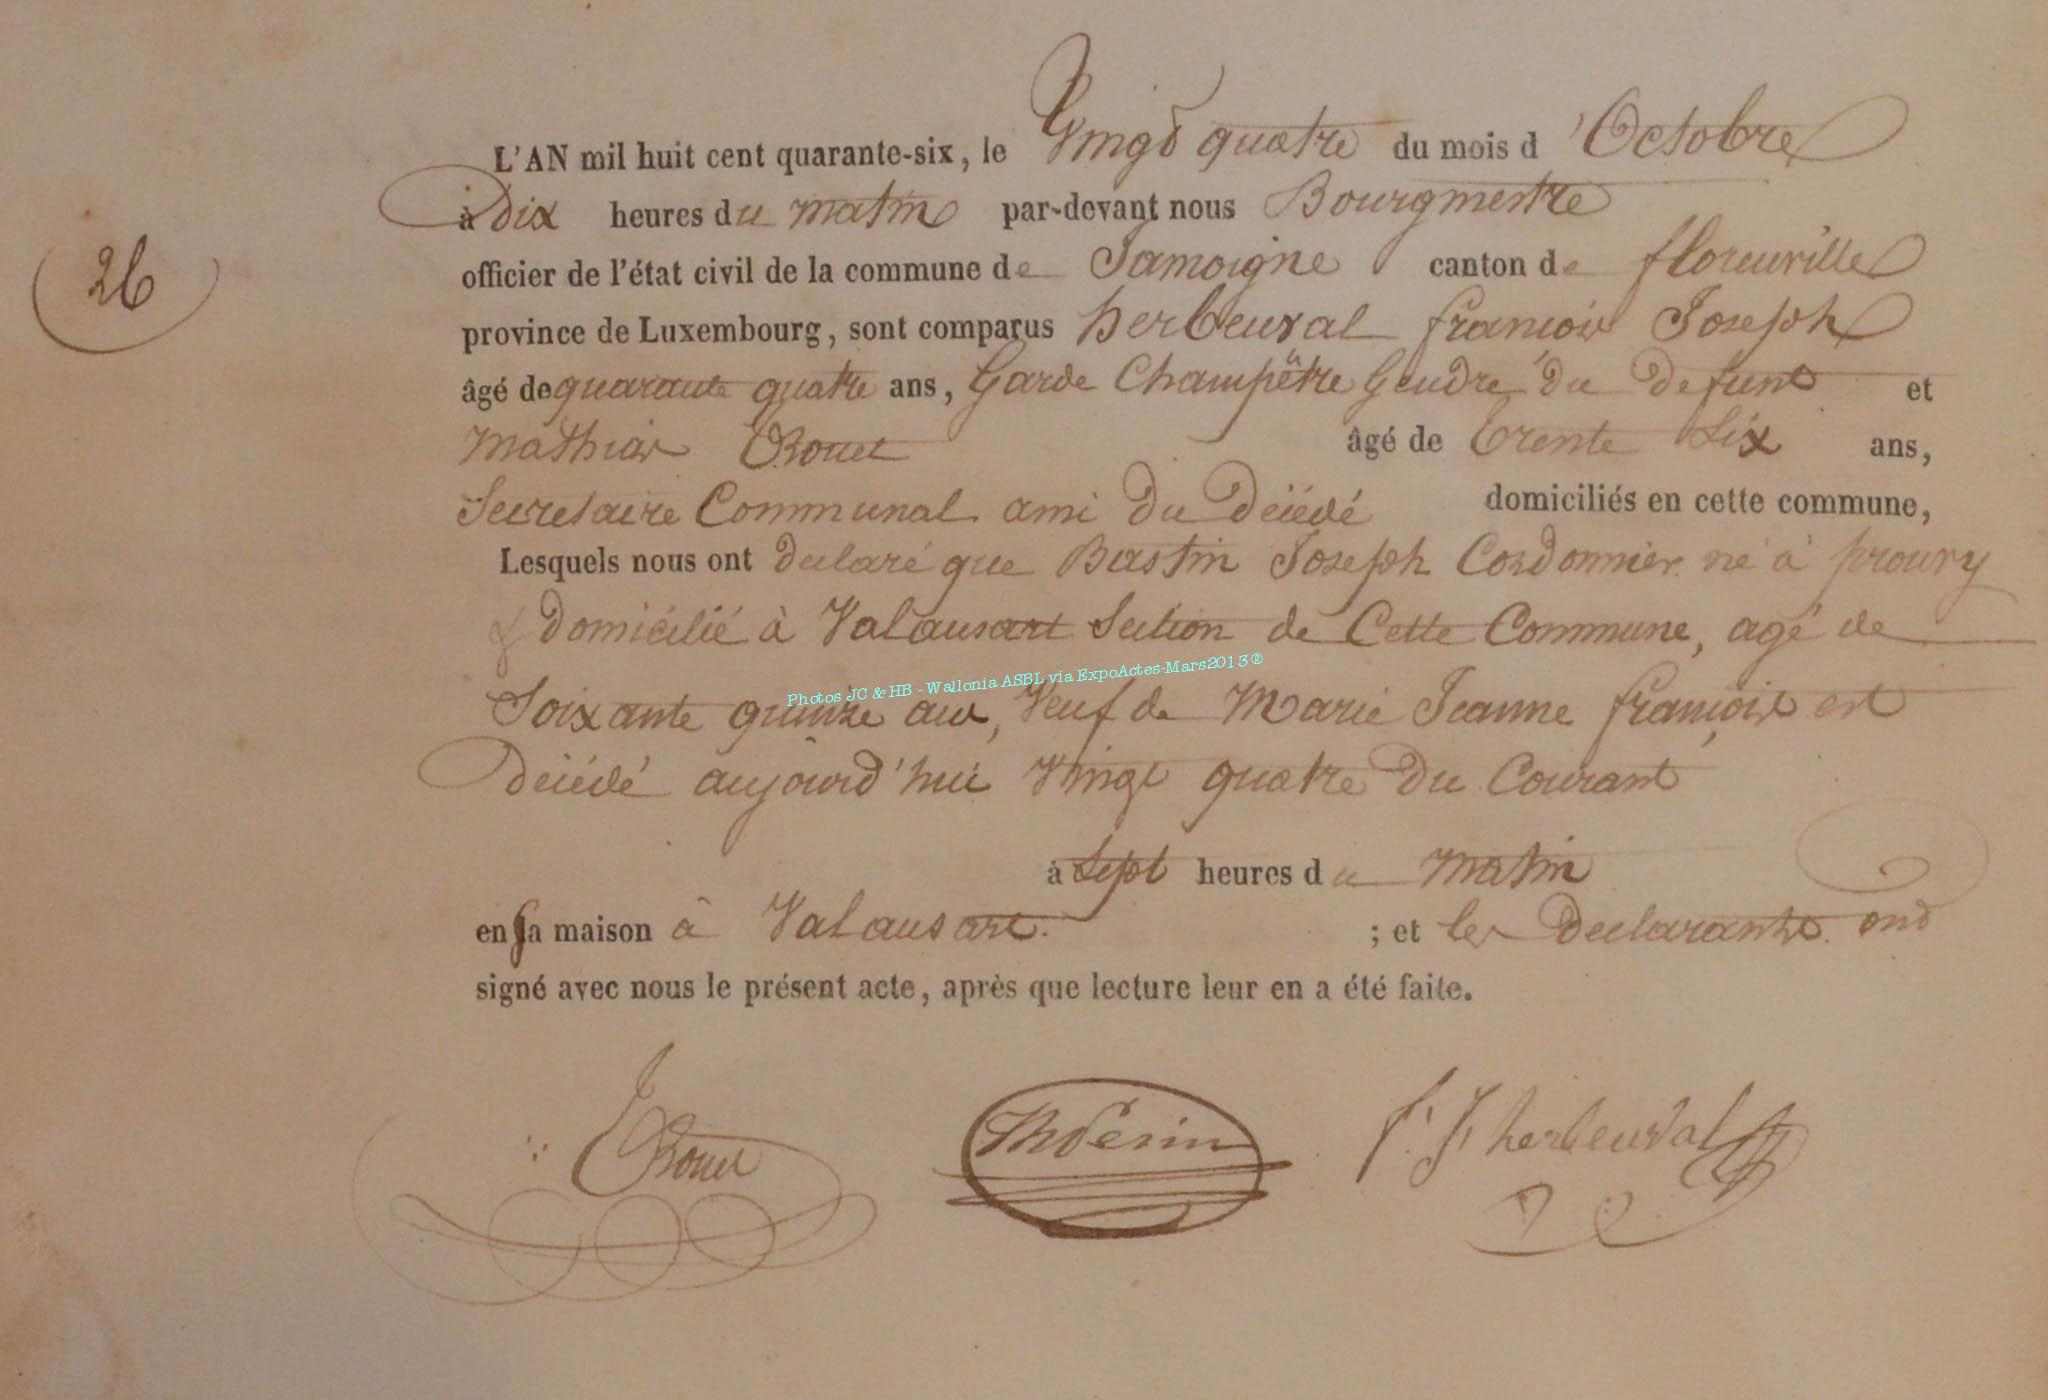 L'AN mil huit cent quarante-six, le Vingt quatre du mois d'Octobre
à Dix heures du matin par-devant nous Bourgmestre
officier de l'état civil de la commune de Jamoigne canton de florenville
26
province de Luxembourg, sont comparus herbeuval françois Joseph
âgé de quarante quatre ans, Garde Champêtre Gendre du defunt et
Mathias Rouet âgé de trente Six ans,
Secretaire Communal ami du Décédé domiciliés en cette commune,
Lesquels nous ont declaré que Bastin Joseph Cordonnier né à prouvy
& domicilié à Valansart Section de Cette Commune, agé de
Photos JC & HB - Wallonia ASBL via ExpoActes-Mars2013®
Soixante quinze ans, Veuf de Marie Jeanne françois est
décédé aujourd'hui Vingt quatre du Courant
à Sept heures du matin
en sa maison à Valansart. ; et les Declarants ont
signé avec nous le présent acte, après que lecture leur en a été faite.
Rouet Th Perin f. J. herbeuval